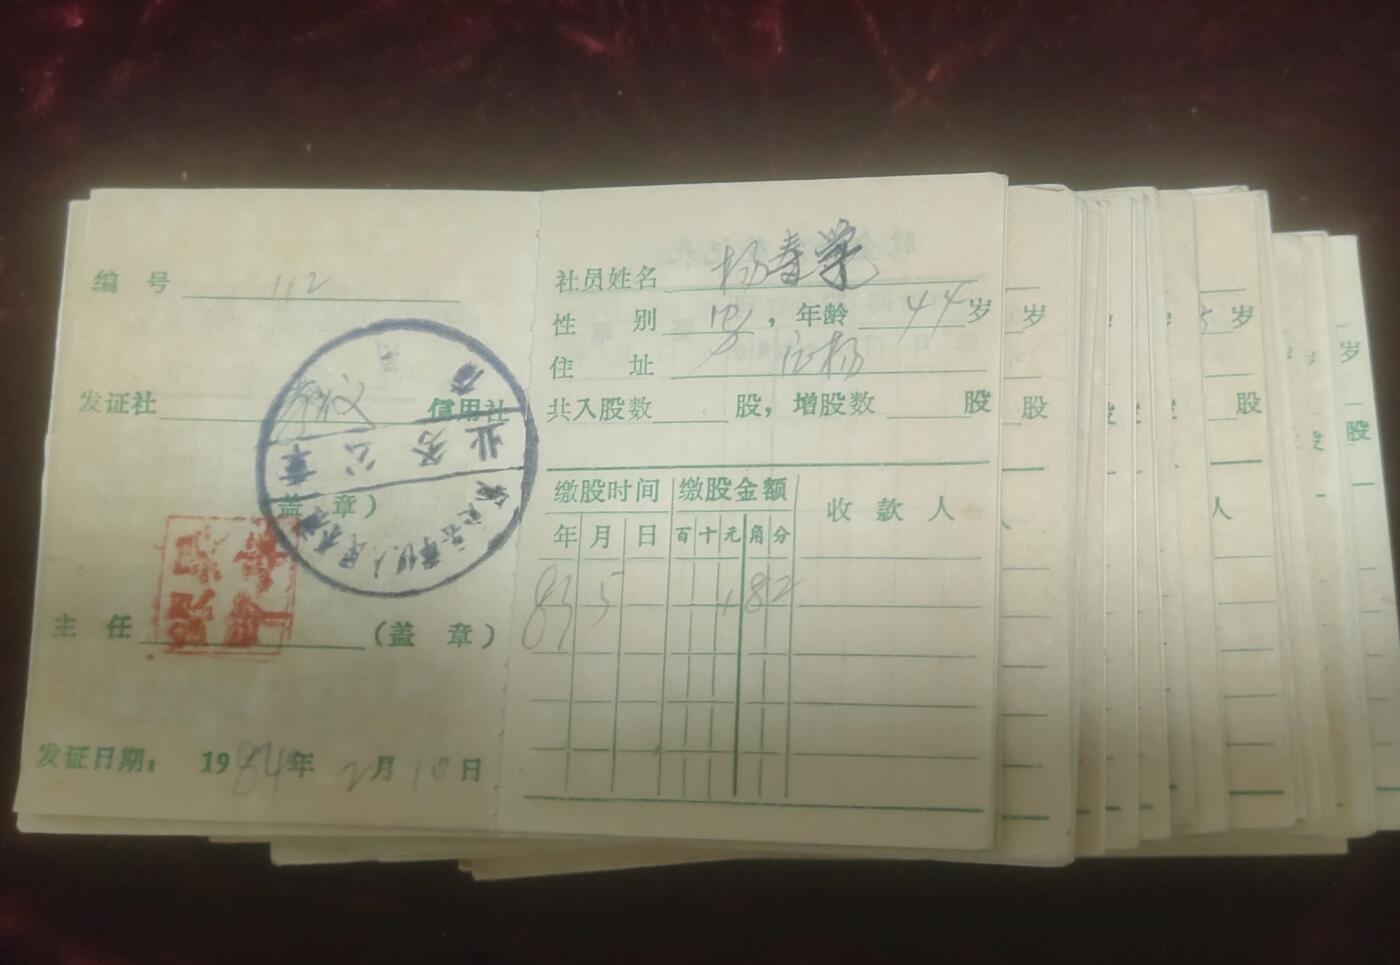 编号 112
发证社 信用社
(盖章)
业务公章
主任 (盖章)
发证日期: 1984年2月10日
社员姓名 杨春学
性别 男, 年龄 44岁
住址
共入股数 股, 增股数 股
缴股时间 缴股金额 收款人
年 月 日 百 十 元 角 分
83 5 1 8 2
岁
股
人
5岁
股
人
岁
股